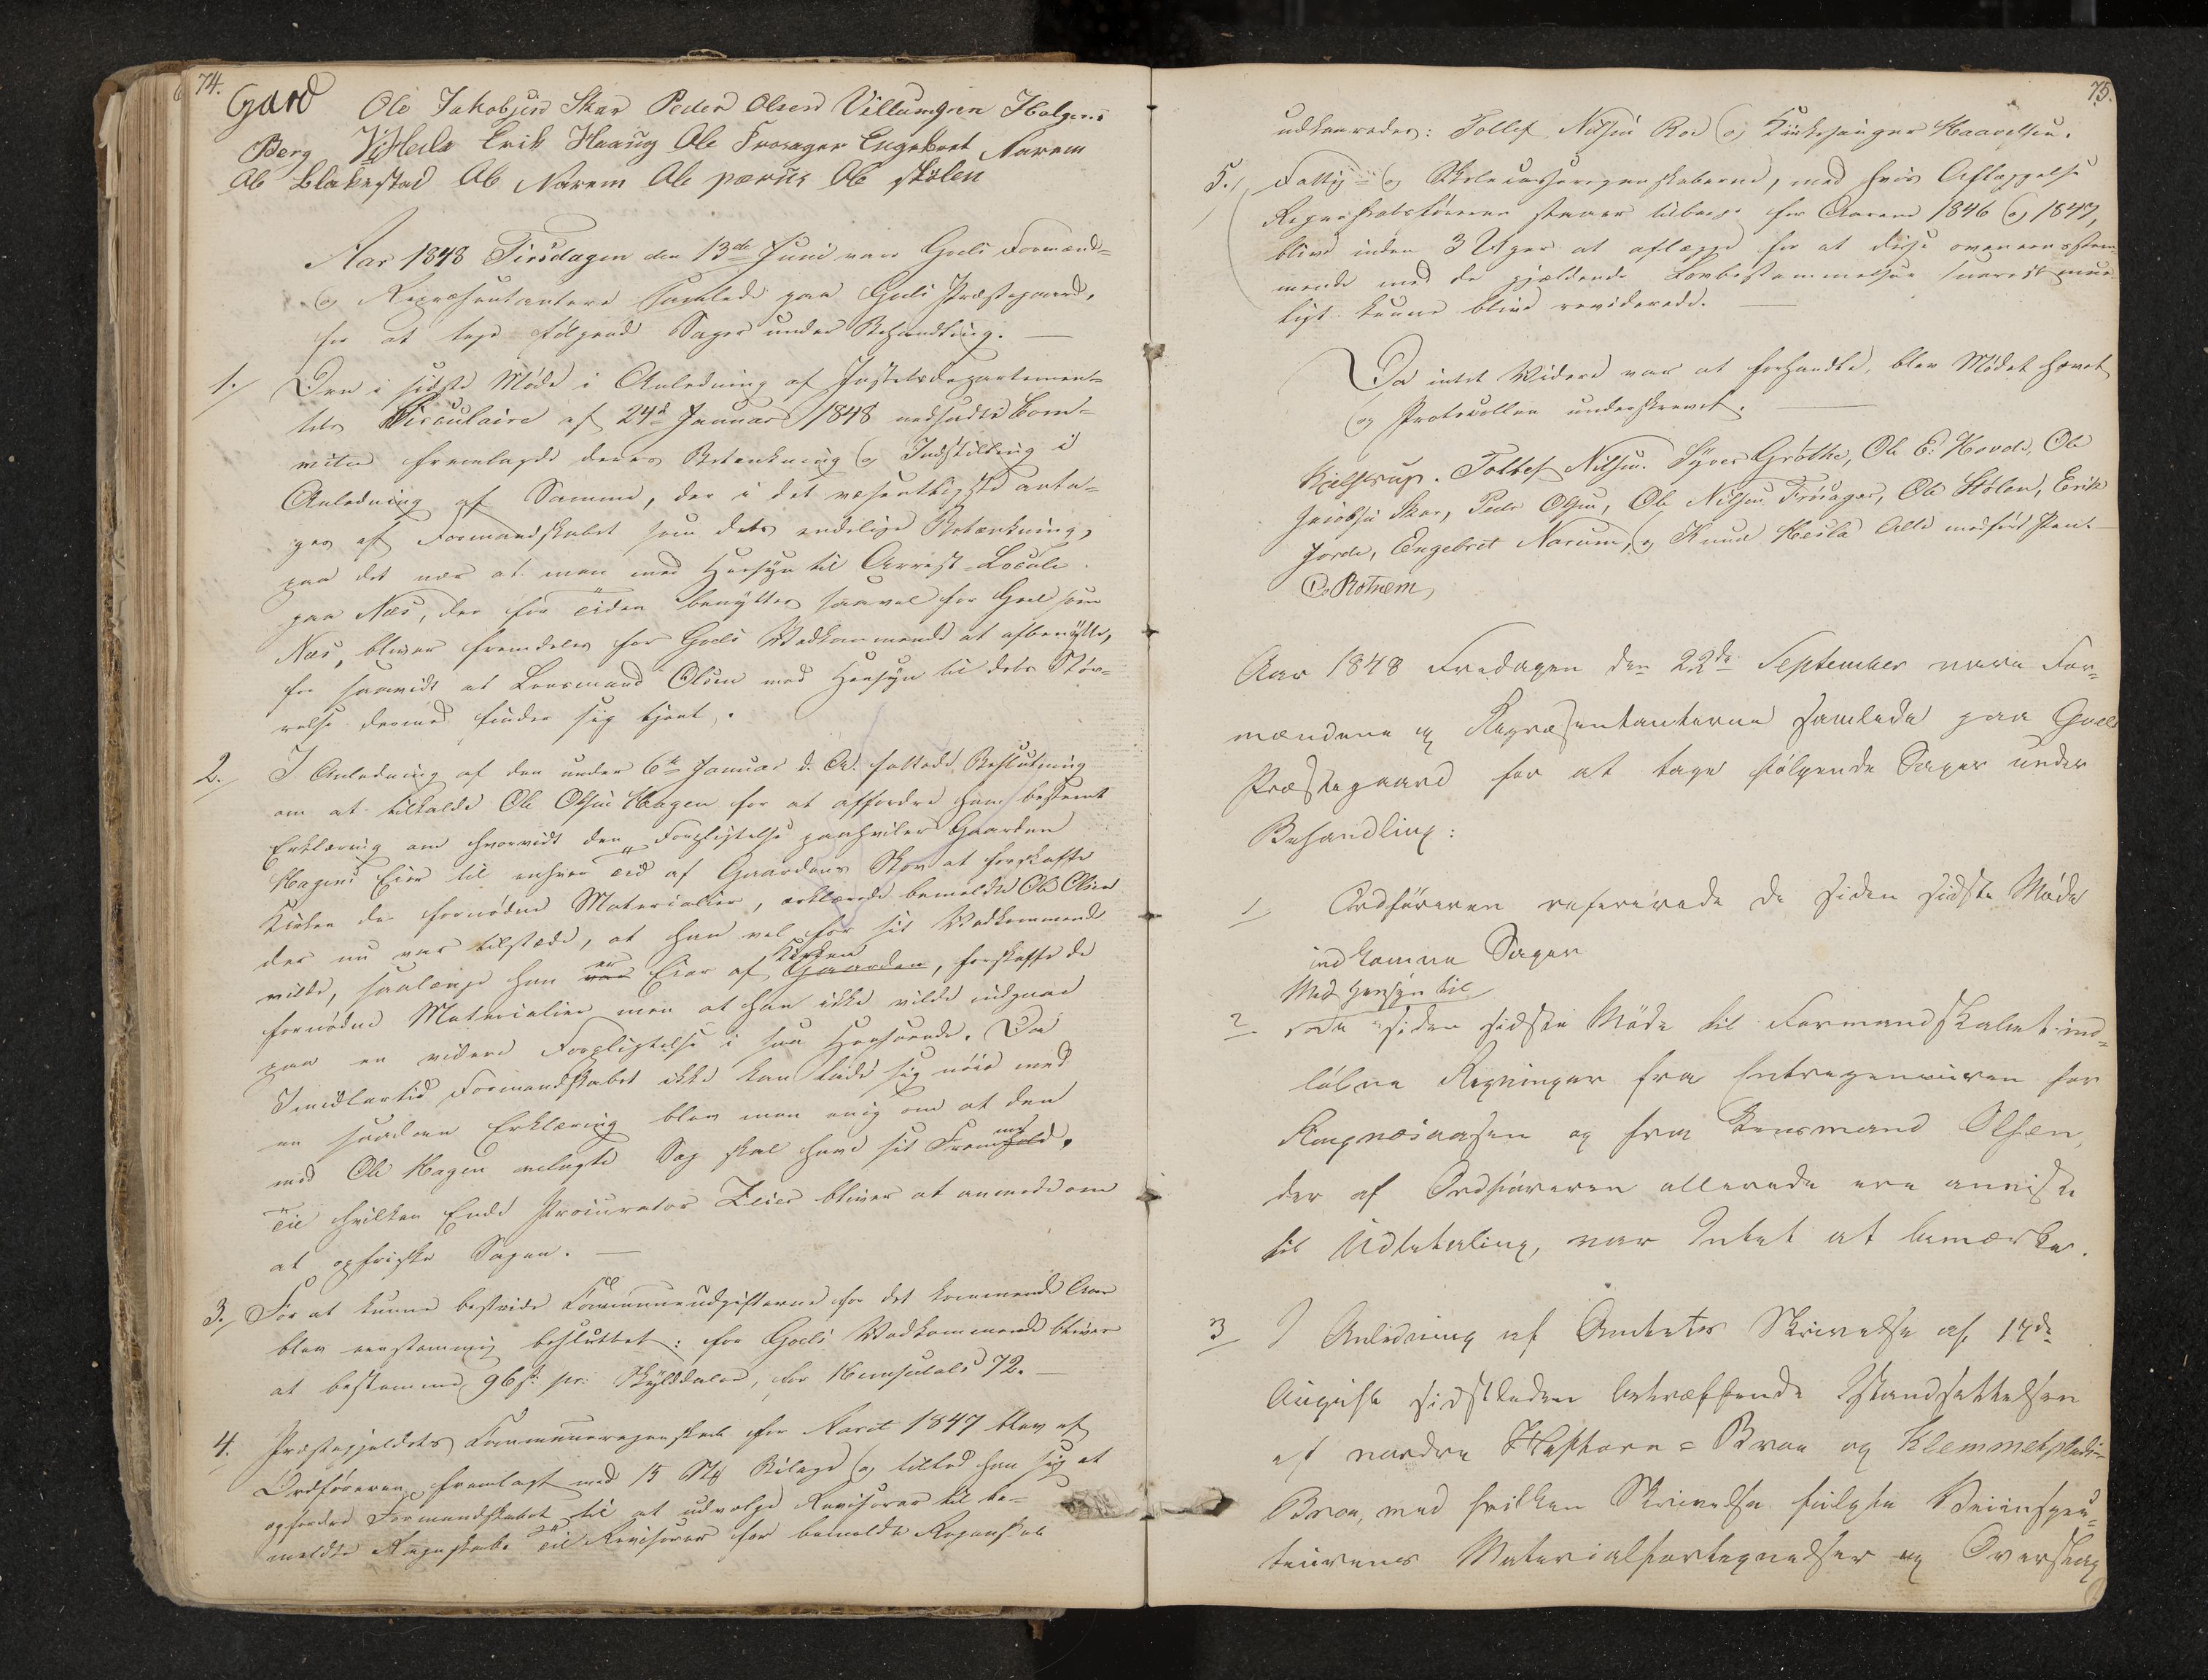 74.
Gard Ole Jakobsen Skar Peder Olsen Villumsen Holgers
Berg K Hesla Erik Haaug Ole Frosager Engebret Narem
Ole Blakestad Ole Narem Ole Stølen
Aar 1848 Tirsdagen den 13de Juni vare Gols Formænd-
og Repræsentantere samlede paa Gols Præstegaard,
for at tage følgende Sager under Behandling. —
1./ Den i sidste Møde i Anledning af Justitsdepartemen-
tets Circulaire af 24de Januar 1848 nedsadte Com-
mitee fremlagde deres Betænkning og Indstilling i
Anledning af Samme, der i det væsentligste anto-
ges af Formandskabet som dets endelige Betænkning,
paa det nær at man med Hensyn til Arrest-Locale
paa Næs, der for Tiden benyttes saavel for Gol som
Næs, bliver fremdeles for Gols Vedkommende at afbenytte,
for saavidt at Lensmand Olsen med Hensyn til dets Stør-
relse dermed finder sig tjent.
2./ I Anledning af den under 6te Januar d. A. fattede Beslutning
om at tilkalde Ole Olsen Hagen for at affordre ham bestemt
Erklæring om hvorvidt den Forpligtelse paahviler Gaarden
Hagens Eier til enhver Tid af Gaardens Skov at forskaffe
Kirken de fornødne Materialier, erklærede bemeldte Ole Olsen
der nu var tilstæde, at han vel for sit Vedkommende
vilde, saalænge han er Eier af Kirken, forskaffe de
fornødne Materialier men at han ikke vilde indgaae
paa en videre Forpligtelse i saa Henseende. Da
Imidlertid Formandskabet ikke kan lade sig nøie med
en saadan Erklæring blev man enig om at den
mod Ole Hagen anlagte Sag skal have sit Fremme,
Til hvilken Ende Procurator Zeier bliver at anmode om
at opfriske Sagen. —
3./ For at kunne bestride Communeudgifterne for det kommende Aar
blev eenstemmig besluttet: for Gols Vedkommende bliver
at bestemme 96 s. pr. Skylddaler, for Hemsedals 72. —
4. Præstegjeldets Communeregnskab for Aaret 1847 blev af
Ordføreren fremlagt med 15 Stk Bilage og tillod han sig at
opfordre Formandskabet til at udvælge Revisorer til be-
meldte Regnskab. Til Revisorer for bemeldte Regnskab
75.
udkaaredes: Tollef Nilsen Roe og Kirkesanger Haavelsen.
5./ Fattig- og Skolecasseregnskaberne, med hvis Aflæggelse
Regnskabsførerne staaer tilbage for Aarene 1846 og 1847,
blive inden 3 Uger at aflægge for at disse overeensstem-
mende med de gjældende Lovbestemmelser snarest mue-
ligt kunne blive reviderede. —
Da intet Videre var at forhandle, blev Mødet hævet
og Protocollen underskrevet. —
Kjelstrup. Tollef Nilsen. Syver Grøthe, Ole E. Hovde, Ole
Jacobsen Skar, Peder Olsen, Ole Nilsen Frøisager, Ole Stølen, Erik
Jorde, Engebret Narum, og Knud Hesla Alle med ført Pen. —
C. Rotnem
Aar 1848 Fredagen den 22de September vare For-
mændene og Repræsentanterne samlede paa Goels
Præstegaard for at tage følgende Sager under
Behandling:
1/ Ordføreren refererede de siden sidste Møde
indkomne Sager
2 Med Hensyn til de siden sidste Møde til Formandskabet ind-
løbne Regninger fra Entrepreneuren for
og fra Lensmand Olsen,
der af Ordføreren allerede ere anviste
til Udbetaling, var Intet at bemærke.
3/ I Anledning af Amtets Skrivelse af 17de
August sidstleden betræffende Istandsættelsen
af nordre - Broe og Klemmetspladts-
Broe, med hvilken Skrivelse fulgte Veiinspec-
teurens Materialfortegnelser og Overslag